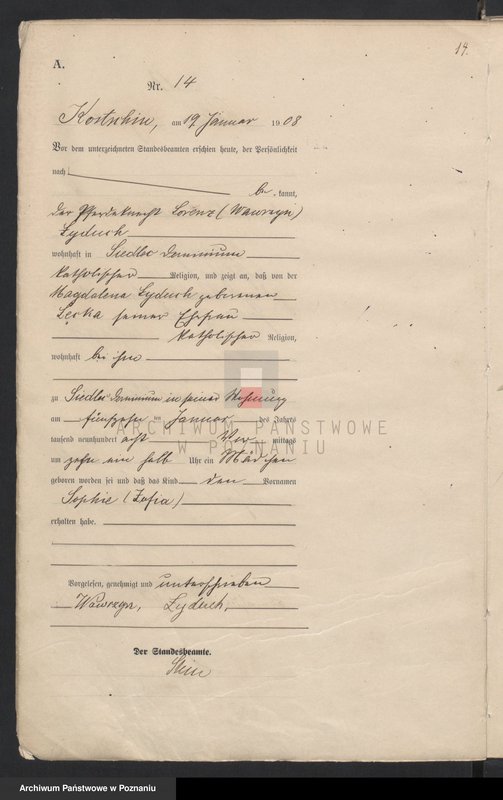 14.
A.
Nr. 14
Kostschin, am 19 Januar 1908
Vor dem unterzeichneten Standesbeamten erschien heute, der Persönlichkeit
nach
be kannt,
der Pferdeknecht Lorenz (Wawrzyn)
Zyduch
wohnhaft in Siedlec Dominium
katholischer Religion, und zeigt an, daß von der
Magdalena Zyduch geborenen
seiner Ehefrau
katholischer Religion,
wohnhaft bei ihm
zu Siedlec Dominium in seiner Wohnung
am fünfzehn ten Januar des Jahres
tausend neunhundert acht Vor mittags
um zehn ein halb Uhr ein Mädchen
geboren worden sei und daß das Kind den Vornamen
Sophie (Zofia)
erhalten habe.
Vorgelesen, genehmigt und unterschrieben
Wawrzyn, Zyduch,
Der Standesbeamte.
ARCHIWUM PAŃSTWOWE
W POZNANIU
Archiwum Państwowe w Poznaniu